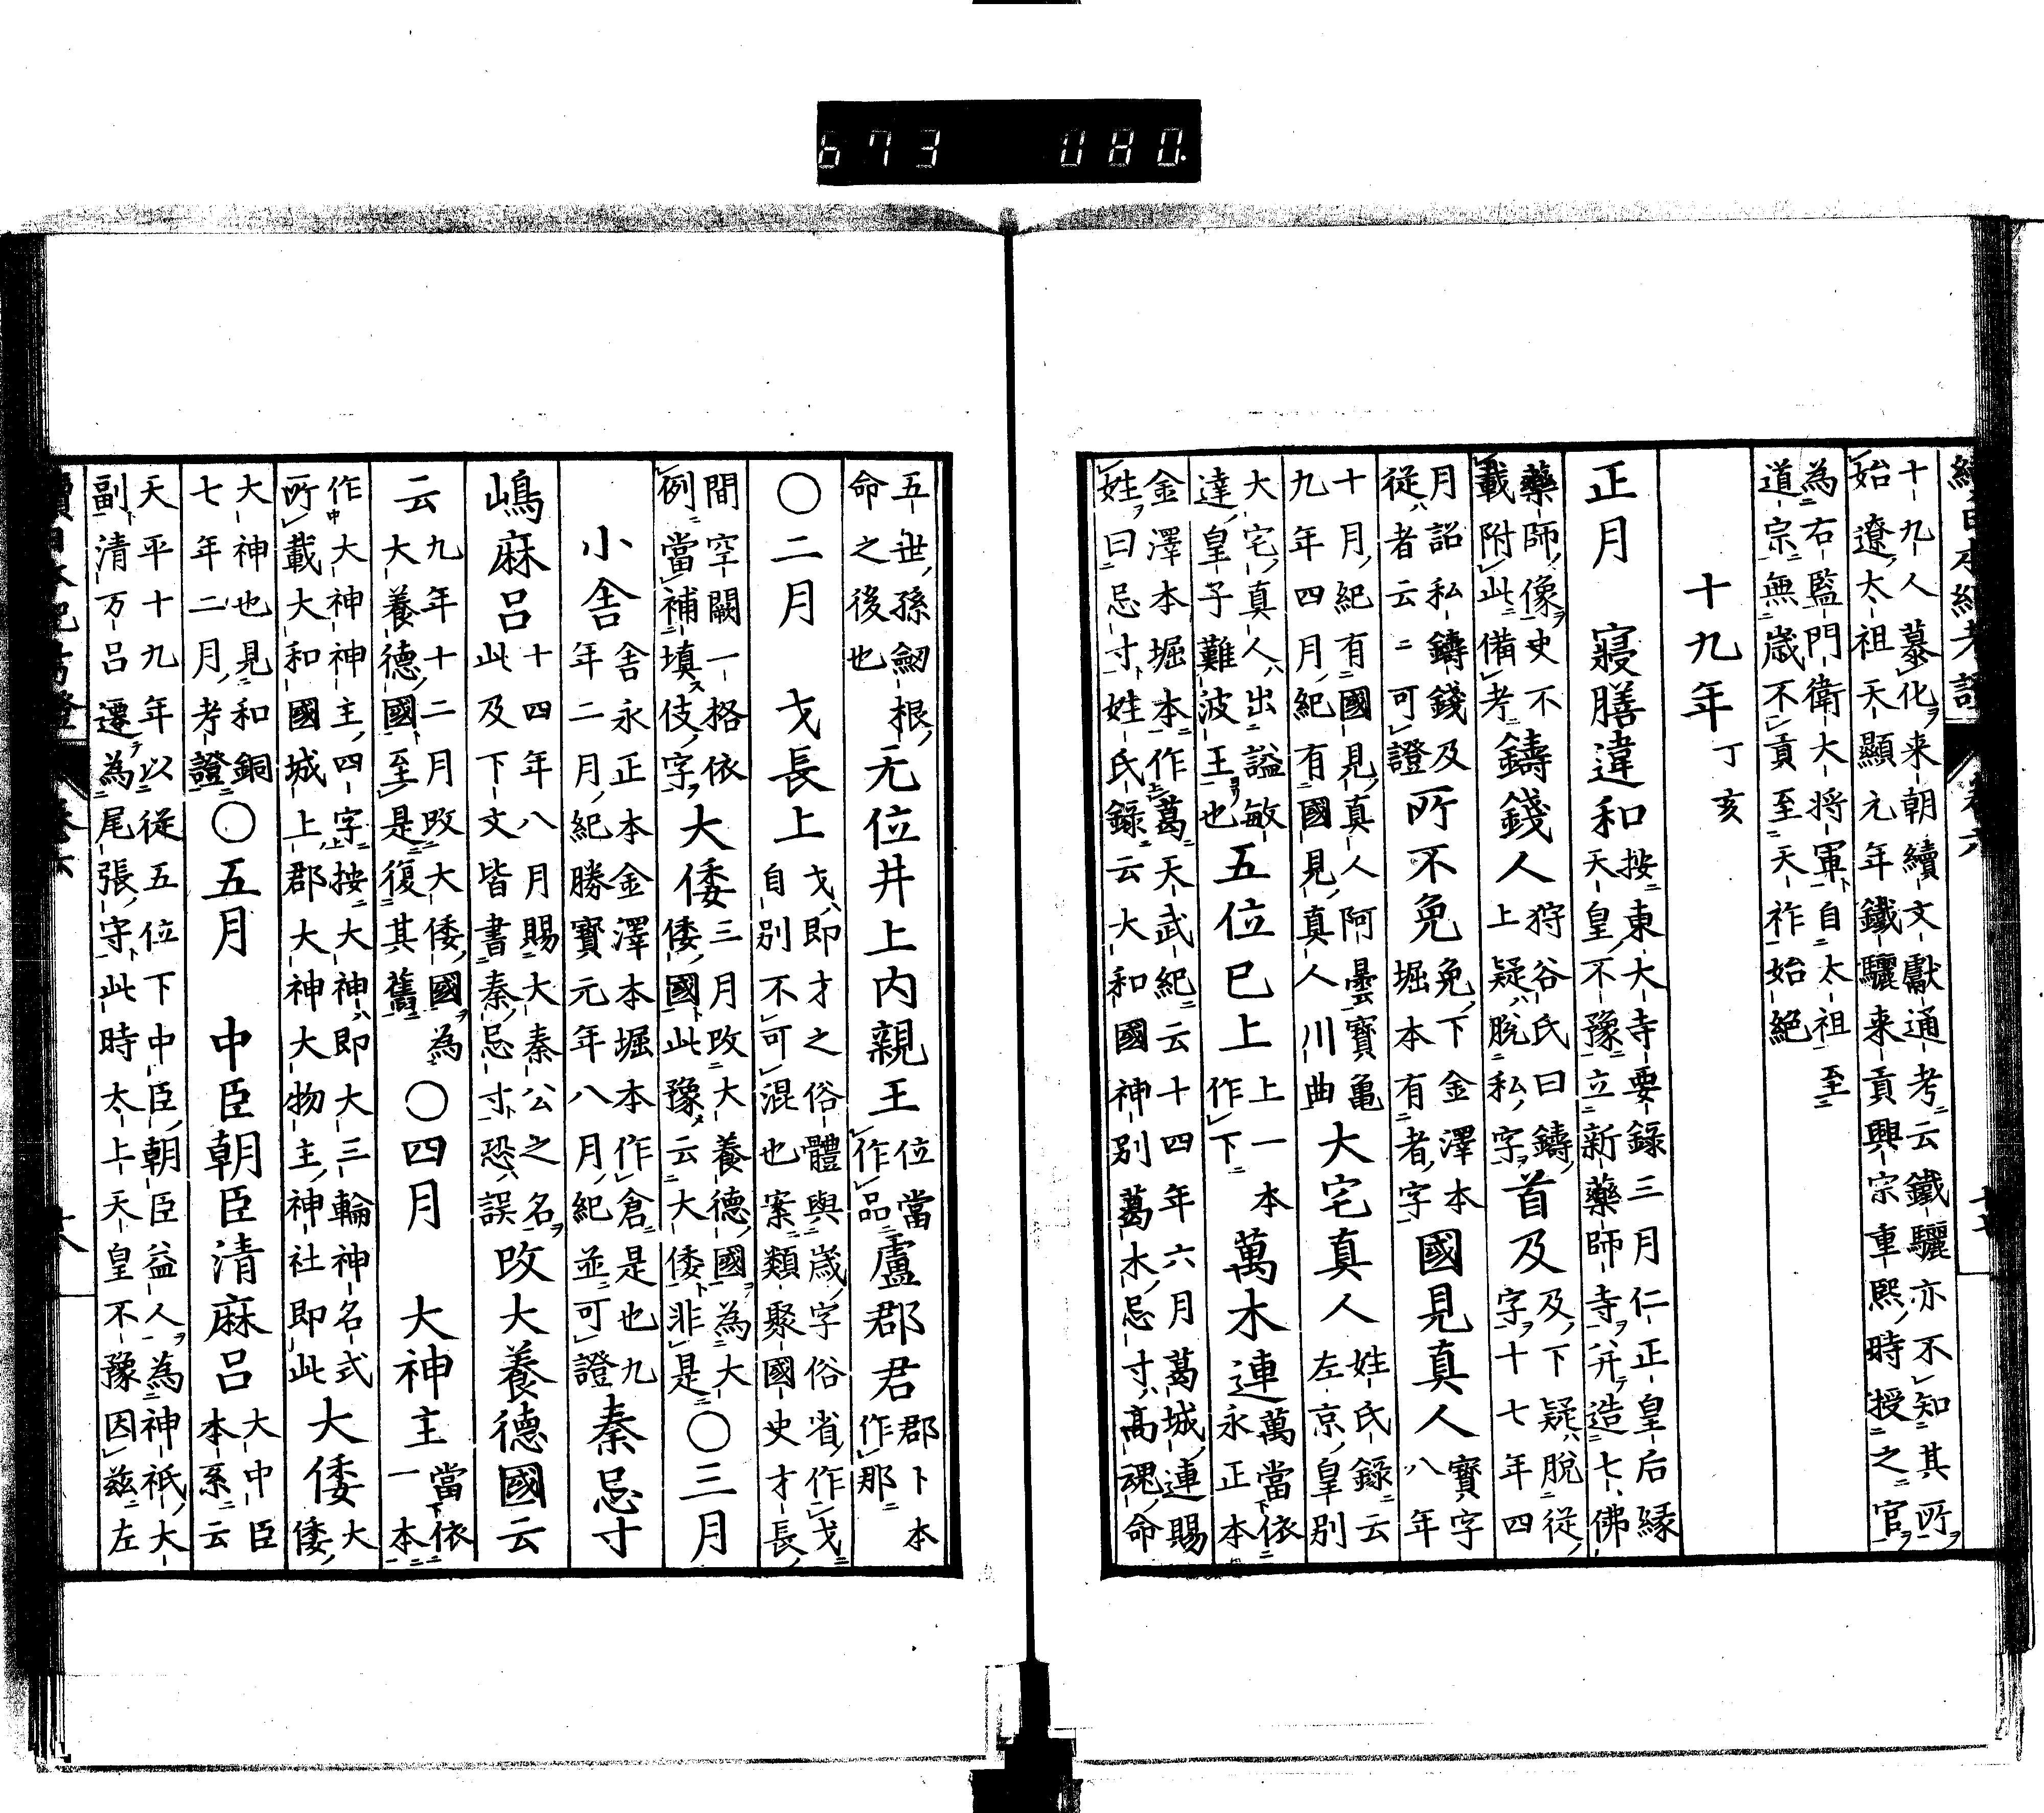 673 080.
十九人慕化来朝續文獻通考云鐵驪亦不知其所
始遼太祖天顯元年鐵驪来貢興宗重熙時授之官
為右監門衛大将軍自太祖至
道宗無歳不貢至天祚始絶
十九年丁亥
正月 寢膳違和按東大寺要録三月仁正皇后縁
天皇不豫立新藥師寺并造七佛
藥師像史不
載附此備考鑄錢人狩谷氏曰鑄
上疑脱私字首及及下疑脱従
字十七年四
月詔私鑄錢及
従者云云可證所不免免下金澤本
堀本有者字國見真人寶字
八年
十月紀有國見真人阿曇寶亀
九年四月紀有國見真人川曲大宅真人姓氏録云
左京皇別
大宅真人出謚敏
達皇子難波王也五位已上上一本
作下萬木連萬當依
永正本
金澤本堀本作葛天武紀云十四年六月葛城連賜
姓曰忌寸姓氏録云大和國神別葛木忌寸高魂命
五世孫劔根
命之後也无位井上内親王位當
作品盧郡君郡卜本
作那
○二月 戈長上戈即才之俗體與歳字俗省作戈
自別不可混也案類聚國史才長
間空闕一格依
例當補填伎字大倭三月改大養德國為大
倭國此豫云大倭非是○三月
小舎舎永正本金澤本堀本作倉是也九
年二月紀勝寶元年八月紀並可證秦忌寸
嶋麻呂十四年八月賜大秦公之名
此及下文皆書秦忌寸恐誤改大養德國云
云九年十二月改大倭國為
大養德國至是復其舊○四月 大神主當依
一本
作大神神主四字按大神即大三輪神名式
所載大和國城上郡大神大物主神社即此大倭大
倭
大神也見和銅
七年二月考證○五月 中臣朝臣清麻呂大中臣
本系云
天平十九年以従五位下中臣朝臣益人為神祇大
副清万呂遷為尾張守此時太上天皇不豫因茲左